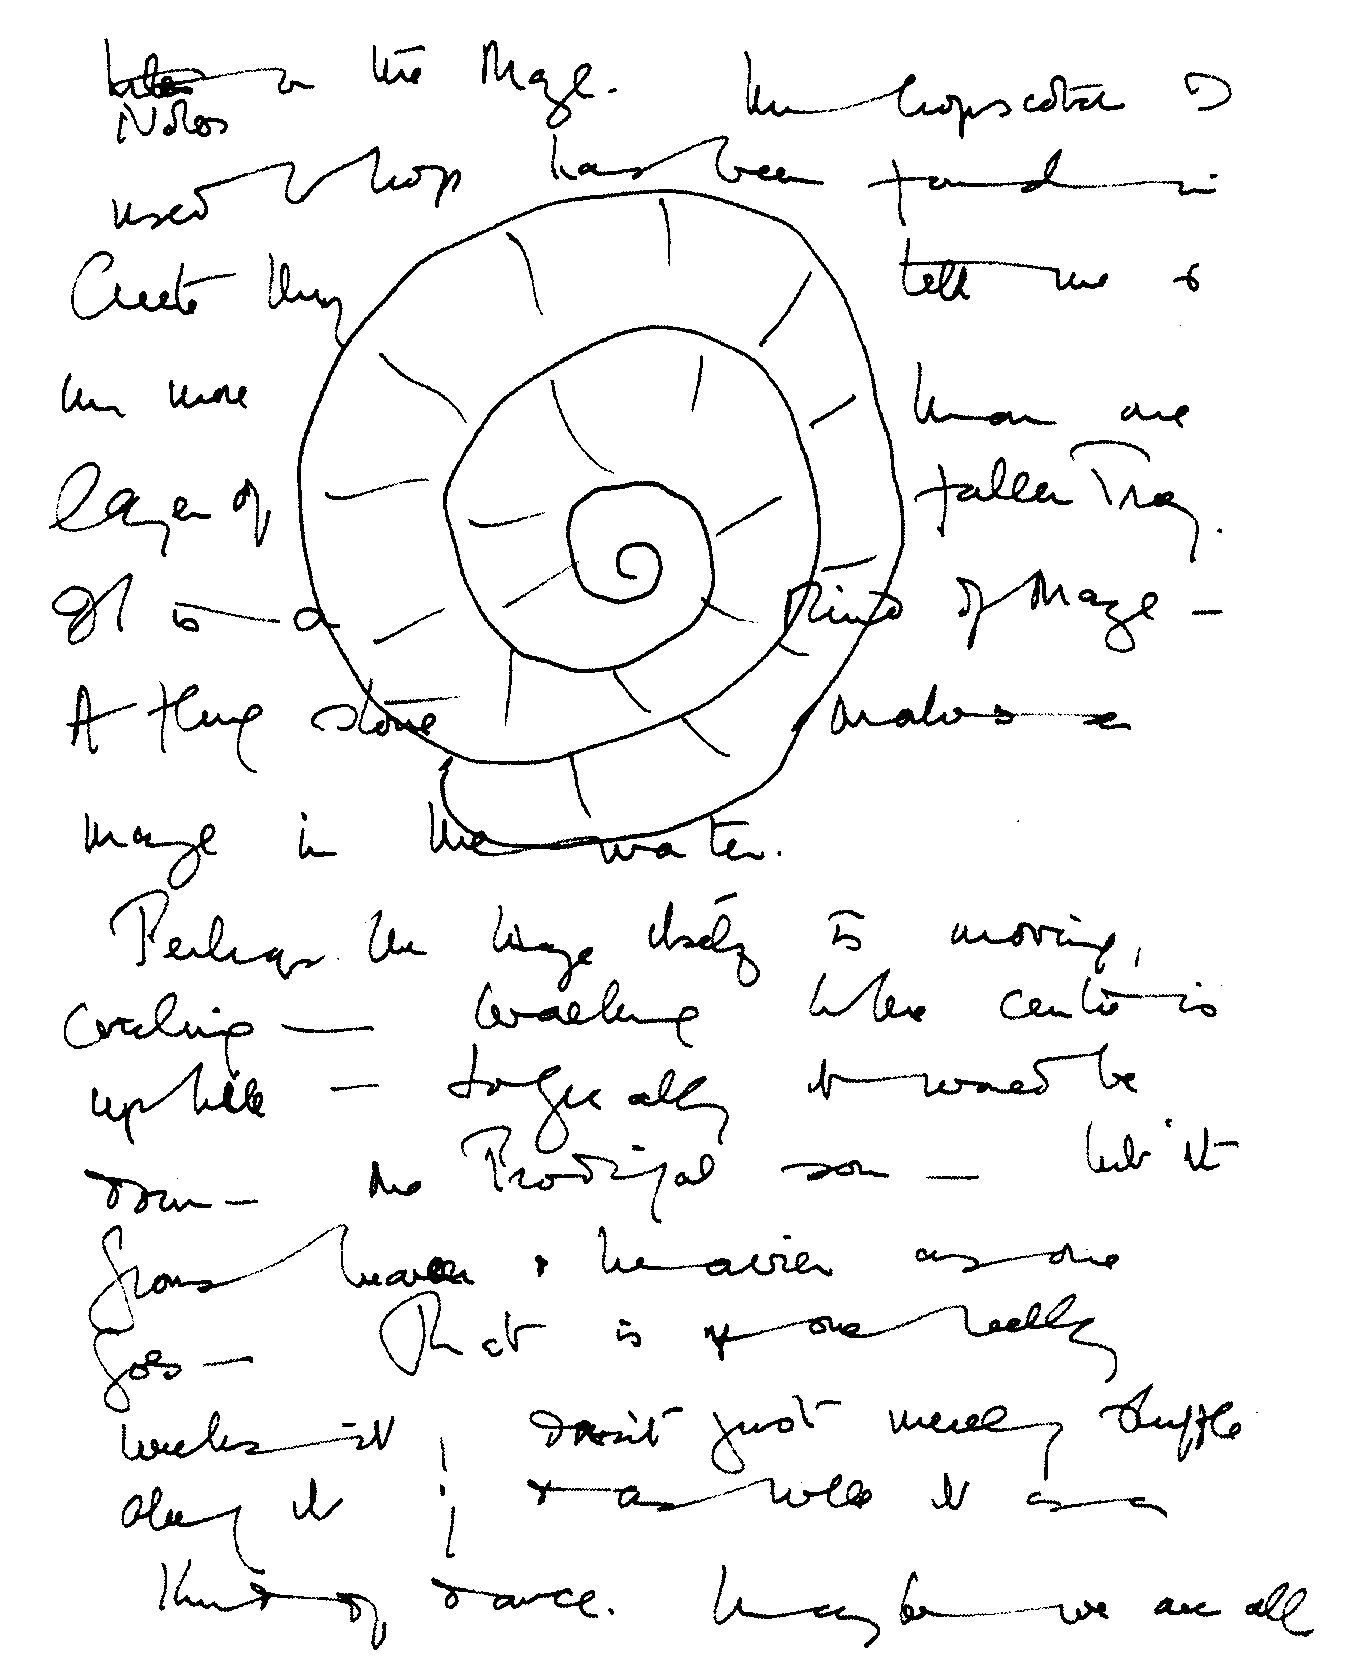 Notes on the Maze. The hopscotch I
used to hop has been found in
Crete they tell me &
in more than one
layer of fallen Troy.
It is a kind of Maze –
A flung stone makes a
maze in the water.
Perhaps the maze itself is moving,
circling — walking where centre is
uphill — logically it would be
down — the Prodigal son — but it
grows heavier & heavier as one
goes — That is if one really
walks it, doesn't just merely shuffle
along it ; & as well it as a
kind of dance. Maybe we are all